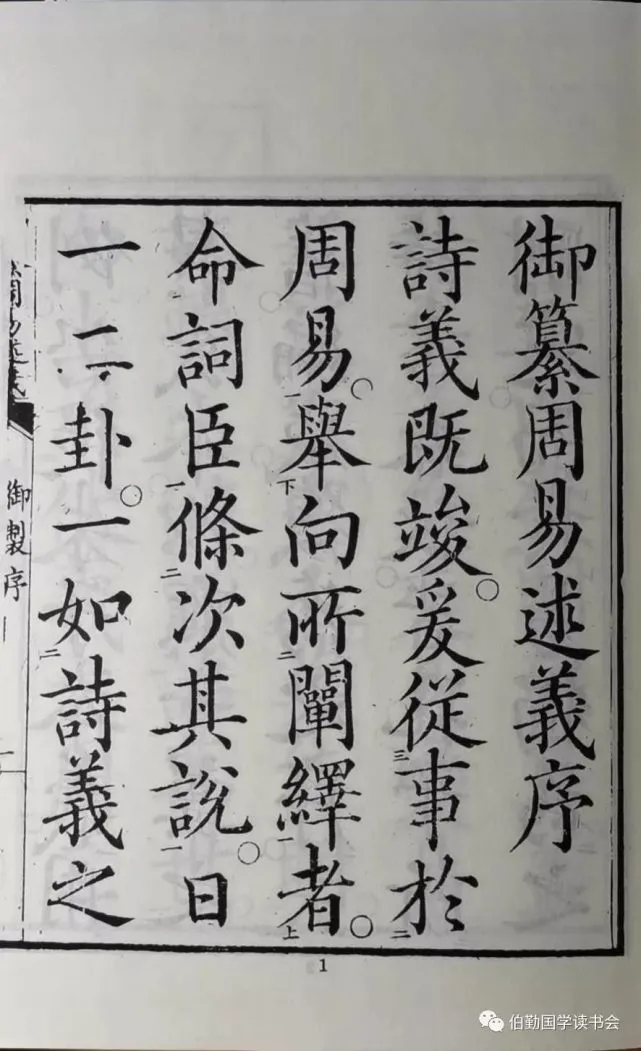 御纂周易述義序
詩義既竣。爰從三事於二
周易。一舉下向所二闡繹一者。上
命詞臣一條二次其說。一日
一二卦。一如二詩義之
周易述義
御製序
一
1
伯勤国学读书会